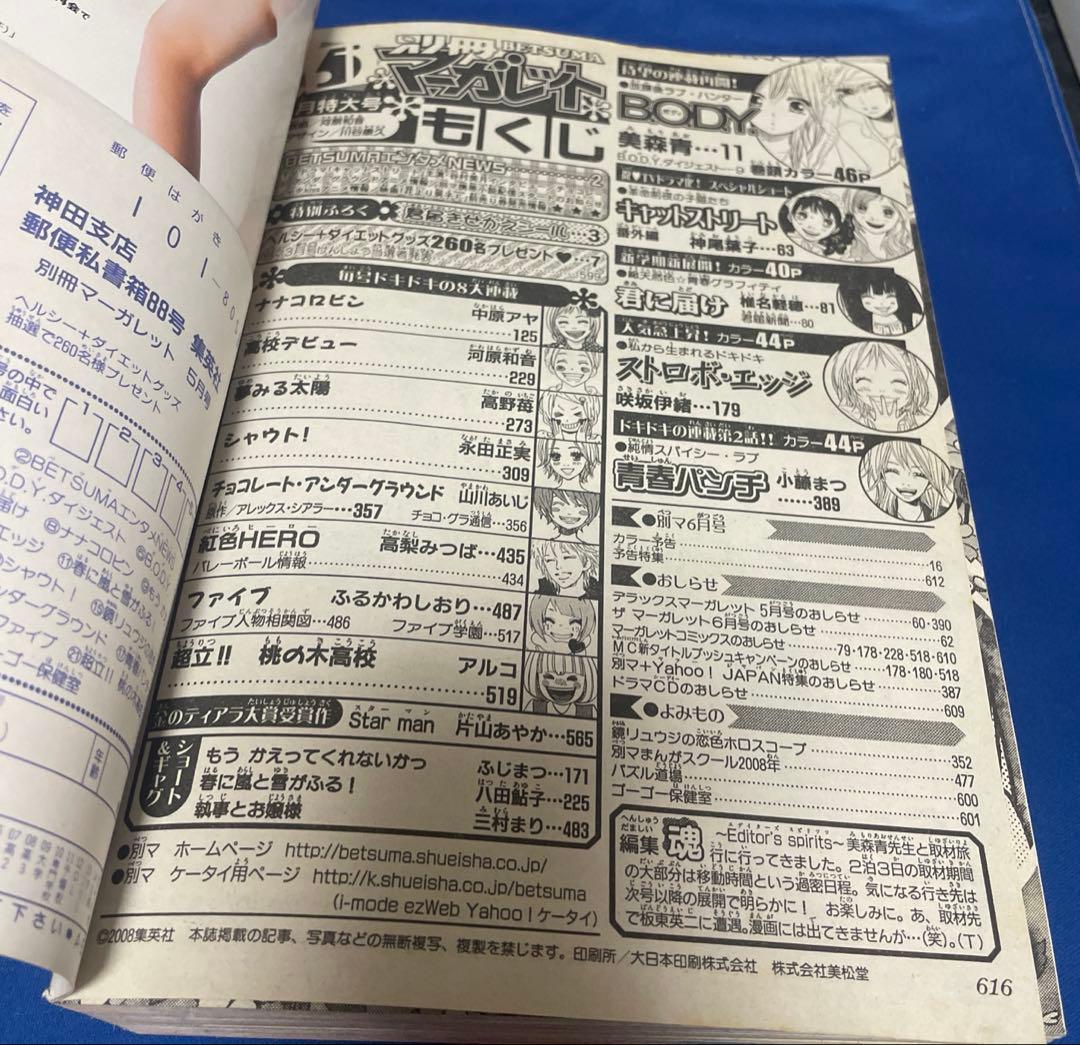 郵便はがき
101-80
神田支店
郵便私書箱88号 集英社
別冊マーガレット 5月号
ヘルシー+ダイエットグッズ
抽選で260名様プレゼント
1 2 3 4
②BETSUMAエンタメNEWS
B.O.D.Y.ダイジェスト ⑥B.O.D.Y
⑧ナナコロビン
別冊 BETSUMA
マーガレット
5月特大号
もくじ
BETSUMAエンタメNEWS……2
特別ふろく
ヘルシー+ダイエットグッズ260名プレゼント♥…7
599
毎号ドキドキの8大連載
ナナコロビン 中原アヤ
125
高校デビュー 河原和音
229
夢みる太陽 高野苺
273
シャウト! 永田正実
309
チョコレート・アンダーグラウンド 山川あいじ
原作/アレックス・シアラー…357 チョコ・グラ通信…356
紅色HERO 高梨みつば…435
バレーボール情報……434
ファイブ ふるかわしおり…487
ファイブ人物相関図…486 ファイブ学園…517
超立!! 桃の木高校 アルコ
519
金のティアラ大賞受賞作 Star man 片山あやか…565
ショート&ギャグ
もう かえってくれないかつ ふじまつ…171
春に嵐と雪がふる! 八田鮎子…225
執事とお嬢様 三村まり…483
●別マ ホームページ http://betsuma.shueisha.co.jp/
●別マ ケータイ用ページ http://k.shueisha.co.jp/betsuma
(i-mode ezWeb Yahoo!ケータイ)
©2008集英社 本誌掲載の記事、写真などの無断複写、複製を禁じます。印刷所/大日本印刷株式会社 株式会社美松堂
待望の連載再開!
●放課後ラブ・ハンター
B.O.D.Y.
美森青…11
B.O.D.Y.ダイジェスト…9 巻頭カラー46P
祝♥TVドラマ化! スペシャルショート
●革命前夜の子猫たち
キャットストリート
番外編 神尾葉子…63
新学期新展開! カラー40P
●純天然色☆青春グラフィティ
君に届け 椎名軽穂…81
君届新聞…80
人気急上昇! カラー44P
●私から生まれるドキドキ
ストロボ・エッジ
咲坂伊緒…179
ドキドキの連載第2話!! カラー44P
●純情スパイシー・ラブ
青春パンチ 小藤まつ
……389
●別マ6月号
カラー予告……16
予告特集……612
●おしらせ
デラックスマーガレット5月号のおしらせ……60・390
ザ マーガレット6月号のおしらせ……62
マーガレットコミックスのおしらせ……79・178・228・518・610
MC新タイトルプッシュキャンペーンのおしらせ……178・180・518
別マ+Yahoo! JAPAN特集のおしらせ……387
ドラマCDのおしらせ……609
●よみもの
鏡リュウジの恋色ホロスコープ……352
別マまんがスクール2008年……477
パズル道場……600
ゴーゴー保健室……601
編集魂
~Editor's spirits~美森青先生と取材旅
行に行ってきました。2泊3日の取材期間
の大部分は移動時間という過密日程。気になる行き先は
次号以降の展開で明らかに! お楽しみに。あ、取材先
で板東英二に遭遇。漫画には出てきませんが…(笑)。(T)
616